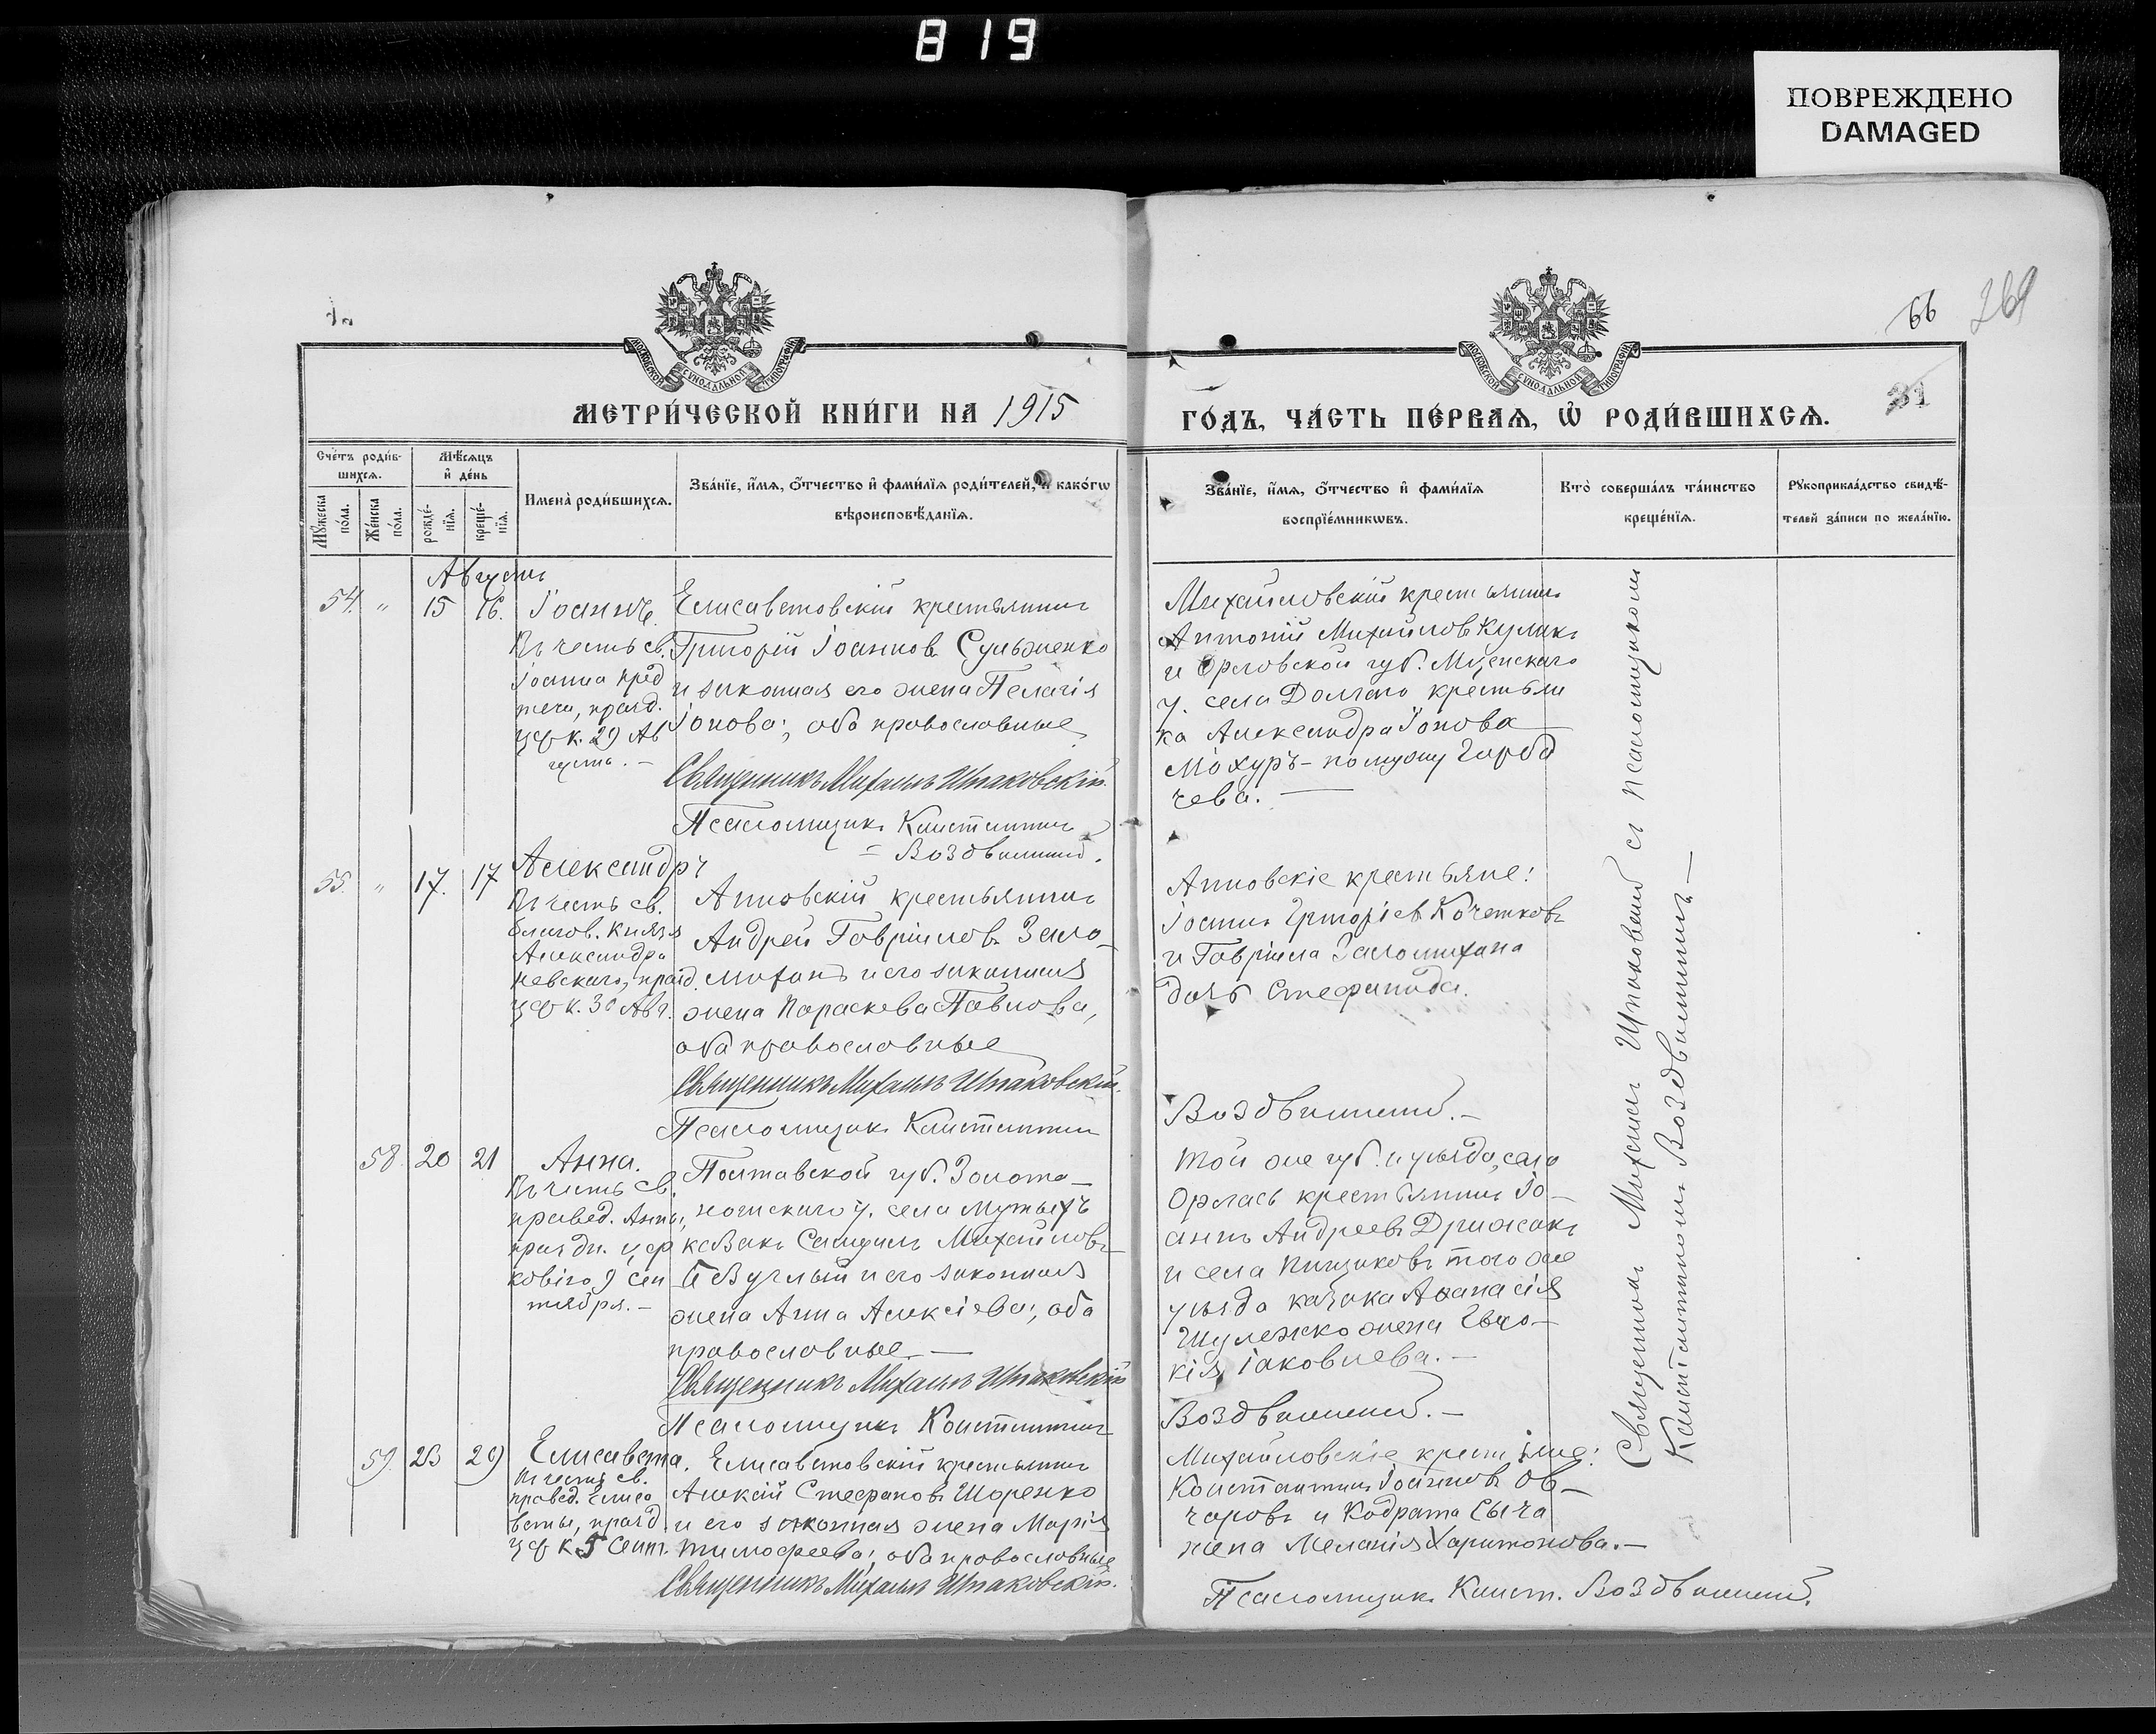 819
ПОВРЕЖДЕНО
DAMAGED
66
269
31
МОСКОВСКОЙ СѴНОДАЛЬНОЙ ТИПОГРАФІИ
МОСКОВСКОЙ СѴНОДАЛЬНОЙ ТИПОГРАФІИ
МЕТРИ́ЧЕСКОЙ КНИ́ГИ НА 1915
ГО́ДЪ, ЧА́СТЬ ПЕ́РВАѦ, Ѡ҆ РОДИ́ВШИХСѦ.
Сче́тъ роди́в-
шихсѧ.
Мꙋ́жеска по́ла.
Же́нска по́ла.
Мѣ́сѧцъ
и҆ де́нь
рожде́-нїѧ.
креще́-нїѧ.
Имена̀ роди́вшихсѧ.
Зва́нїе, и҆́мѧ, ѻ҆́тчество и҆ фами́лїѧ роди́телей, и҆ како́гѡ
вѣроисповѣ́данїѧ.
Зва́нїе, и҆́мѧ, ѻ҆́тчество и҆ фами́лїѧ
воспрїе́мникѡвъ.
Кто̀ соверша́лъ та́инство
креще́нїѧ.
Рꙋкоприкла́дство свидѣ́-
телей за́писи по жела́нїю.
Августъ
54. " 15 16. Іоаннъ.
Въ честь св.
Іоанна Пред
течи, празд.
цф к. 29 Ав
густа. —
Елисаветовскій крестьянинъ
Григорій Іоаннов Сульженко
и законная его жена Пелагія
Іонова; оба православные
Священникъ Михаилъ Шпаковскій.
Псаломщикъ Константинъ
= Воздвиженскій.
Михайловскій крестьянинъ
Антоній Михайловъ Куликъ
и Орловской губ. Мценскаго
у. села Долгаго крестьян
ка Александра Іонова
Мохуръ - по мужу Горба
чева. —
55. " 17. 17 Александръ
Въ честь св.
благов. Князя
Александра
Невскаго, празд.
цф к. 30 Авг.
Анновскій крестьянинъ
Андрей Гавріиловъ Зало-
миханъ и его законная
жена Параскева Павлова,
оба православные
Священникъ Михаилъ Шпаковскій.
Псаломщикъ Константинъ
Анновскіе крестьяне:
Іоаннъ Григоріевъ Кочетковъ
и Гавріила Заломихана
дочь Стефанида.
Воздвиженскій. —
58. 20 21 Анна.
Въ честь св.
правед. Анны,
праздн. цер
ковію 9 сен
тября. —
Полтавской губ. Золото-
ношскаго у. села
казакъ Михайловъ
и его законная
жена Анна Алексіева; оба
православные. —
Священникъ Михаилъ Шпаковскій
Псаломщикъ Константинъ
Той же губ. и уѣзда, села
крестьянинъ Іо-
аннъ Андреевъ
и села того же
уѣзда казака Аѳанасія
жена Евдо-
кія Іаковлева. —
Воздвиженскій. —
59. 29 Елисавета.
Въ честь св.
правед. Елиса
веты, празд.
цф к 5 Сент.
Елисаветовскій крестьянинъ
Алексій Стефановъ Шоренко
и его законная жена Марія
Тимофеева; оба православные
Священникъ Михаилъ Шпаковскій.
Михайловскіе крестьяне:
Константинъ Іоанновъ Ов-
чаровъ и Кодрата Сыча
жена Меланія Харитонова. —
Псаломщикъ Конст. Воздвиженскій.
Священникъ Михаилъ Шпаковскій съ псаломщикомъ
Константиномъ Воздвиженскимъ —